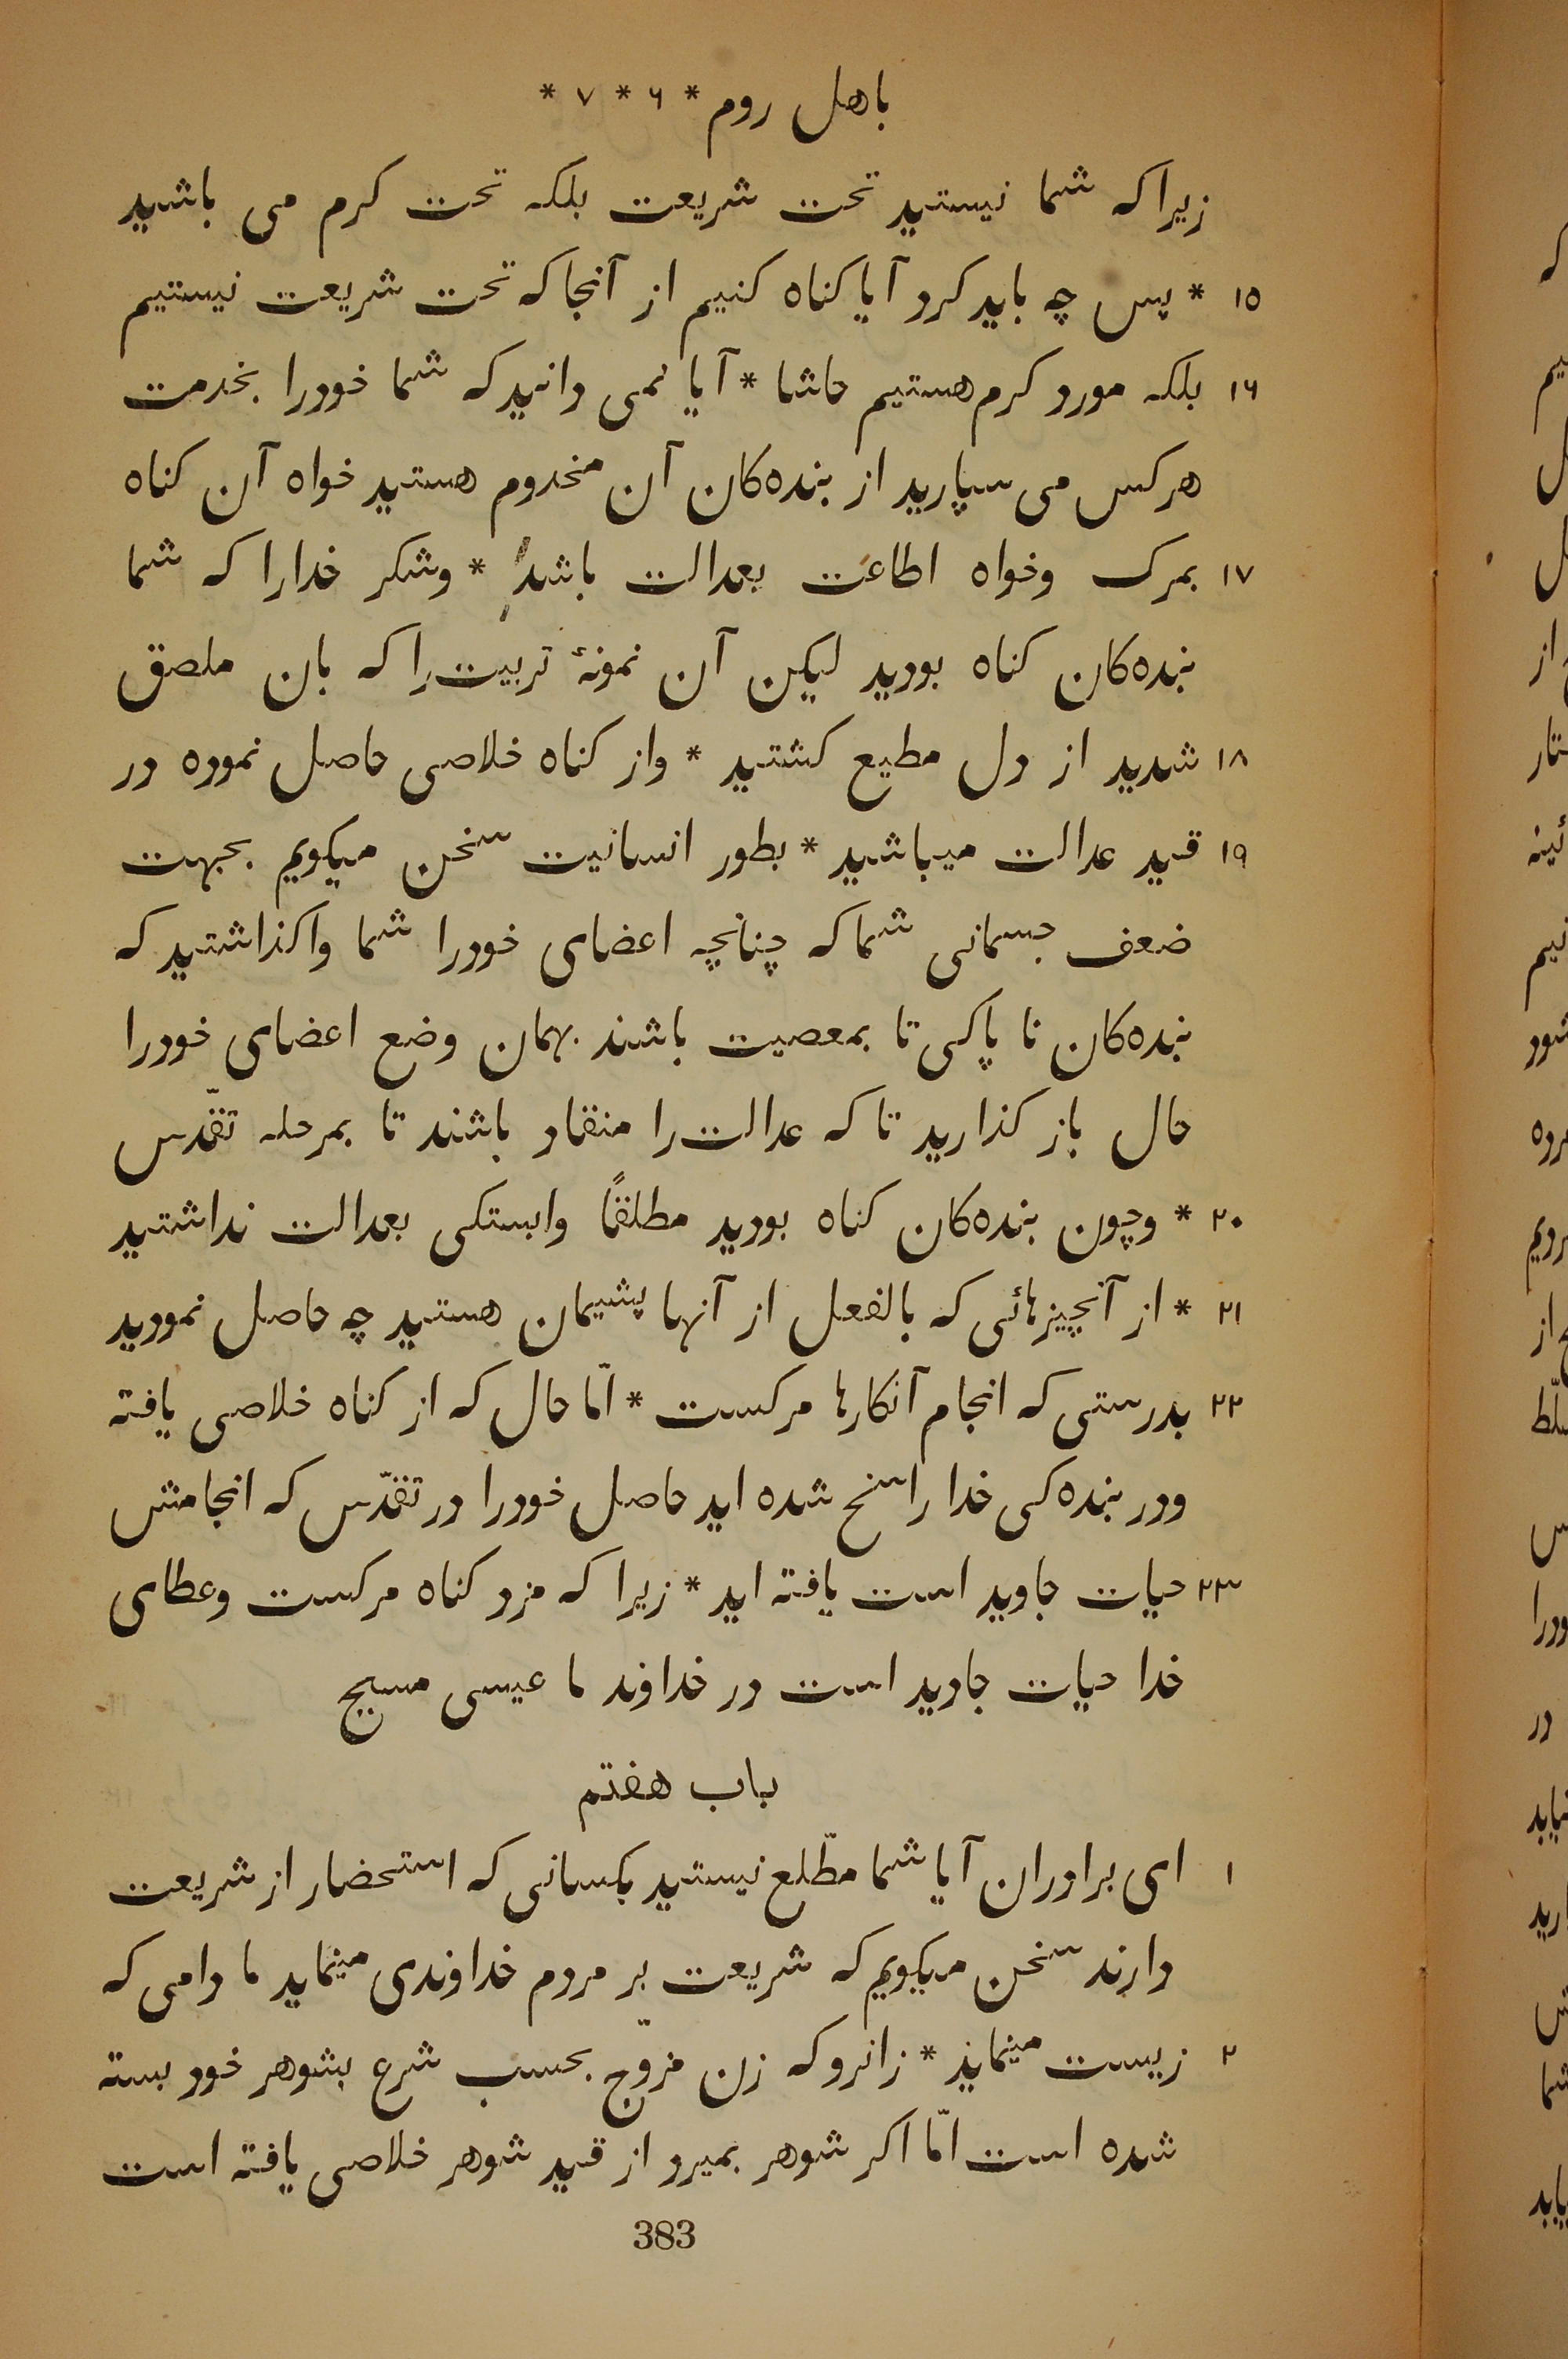 باهل روم * ۶ * ۷ *
زیراکه شما نیستید تحت شریعت بلکه تحت کرم می باشید
۱۵ * پس چه باید کرد آیا کناه کنیم از آنجا که تحت شریعت نیستیم
۱۶ بلکه مورد کرم هستیم حاشا * آیا نمی دانید که شما خودرا بخدمت
هرکس می سپارید از بنده‌کان آن مخدوم هستید خواه آن کناه
۱۷ بمرک وخواه اطاعت بعدالت باشد * وشکر خدارا که شما
بنده‌کان کناه بودید لیکن آن نمونهٔ تربیت را که بان ملصق
۱۸ شدید از دل مطیع کشتید * واز کناه خلاصی حاصل نموده در
۱۹ قید عدالت میباشید * بطور انسانیت سخن میکویم بجهت
ضعف جسمانی شما که چنانچه اعضای خودرا شما واکذاشتید که
بنده‌کان نا پاکی تا بمعصیت باشند بهمان وضع اعضای خودرا
حال باز کذارید تا که عدالت را منقاد باشند تا بمرحله تقدّس
۲۰ * وچون بنده‌کان کناه بودید مطلقاً وابستکی بعدالت نداشتید
۲۱ * از آنچیزهائی که بالفعل از آنها پشیمان هستید چه حاصل نمودید
۲۲ بدرستی که انجام آنکارها مرکست * امّا حال که از کناه خلاصی یافته
ودر بنده‌کی خدا راسخ شده اید حاصل خودرا در تقدّس که انجامش
۲۳ حیات جاوید است یافته اید * زیرا که مزد کناه مرکست وعطای
خدا حیات جاوید است در خداوند ما عیسی مسیح
باب هفتم
۱ ای برادران آیا شما مطّلع نیستید بکسانی که استحضار از شریعت
دارند سخن میکویم که شریعت بر مردم خداوندی مینماید ما دامی که
۲ زیست مینماید * زانرو که زن مزوّج بحسب شرع بشوهر خود بسته
شده است امّا اکر شوهر بمیرد از قید شوهر خلاصی یافته است
383